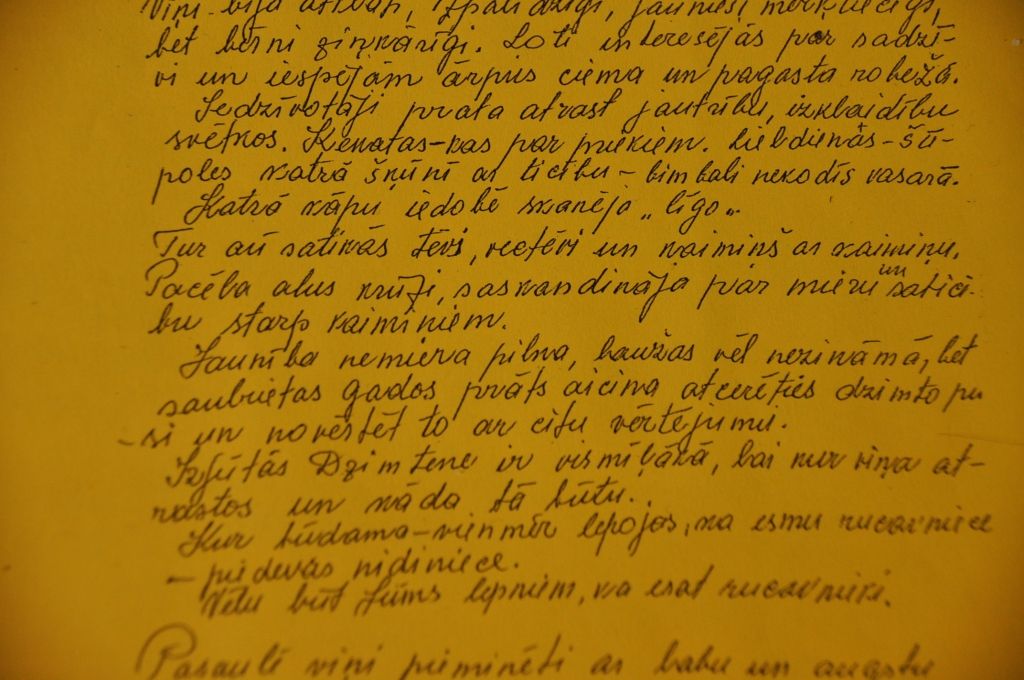 Viņi bija atvērti, izpalīdzīgi, jaunieši mērķtiecīgi,
bet bērni ziņkārīgi. Ļoti interesējās par sadzī-
vi un iespējām ārpus ciema un pagasta robežā.
Iedzīvotāji prata atrast jautrību, izklaidību
svētkos. Ķekatas-kas par priekiem. Lieldienās-šū-
poles katrā šķūnī ar ticību - bimbali nekodīs vasarā.
Katrā kāpu iedobē skanēja "līgo".
Tur arī satikās tēvi, vectēvi un kaimiņš ar kaimiņu.
Pacēla alus krūži, saskandināja par mieru un satici-
bu starp kaimiņiem.
Jaunība nemiera pilna, laužas vēl nezināmā, bet
saubrietas gados prāts aicina atcerēties dzimto pu
-si un novērtēt to ar citu vērtējumu.
Izjūtās Dzimtene ir vismīļākā, lai kur viņa at-
rastos un kāda tā būtu.
Kur būdama-vienmēr lepojos, ka esmu rucavniece
- piedevās nidiniece.
Vēlu būt Jums lepniem, ka esat rucavnieki.
Pasaulē viņi pieminēti ar labu un augstu